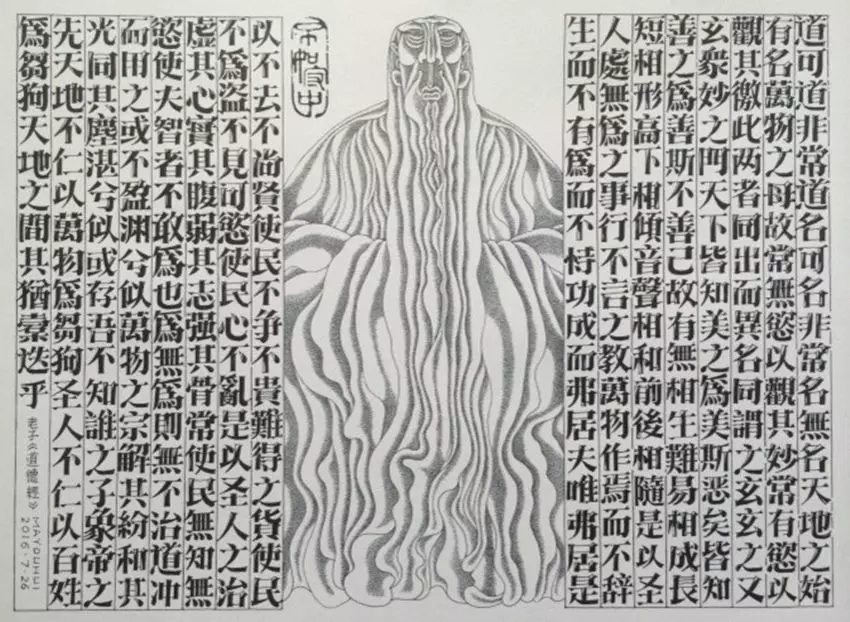 道可道非常道名可名非常名無名天地之始
有名萬物之母故常無慾以觀其妙常有慾以
觀其徼此两者同出而異名同謂之玄玄之又
玄衆妙之門天下皆知美之爲美斯恶矣皆知
善之爲善斯不善己故有無相生難易相成長
短相形高下相傾音聲相和前後相隨是以圣
人處無爲之事行不言之教萬物作焉而不辞
生而不有爲而不恃功成而弗居夫唯弗居是
以不去不尚賢使民不争不貴難得之貨使民
不爲盗不見可慾使民心不亂是以圣人之治
虚其心實其腹弱其志强其骨常使民無知無
慾使夫智者不敢爲也爲無爲則無不治道冲
而用之或不盈渊兮似萬物之宗解其紛和其
光同其塵湛兮似或存吾不知誰之子象帝之
先天地不仁以萬物爲芻狗圣人不仁以百姓
爲芻狗天地之間其猶橐迭乎
老子《道德經》
MAYOUHUI
2016.7.26